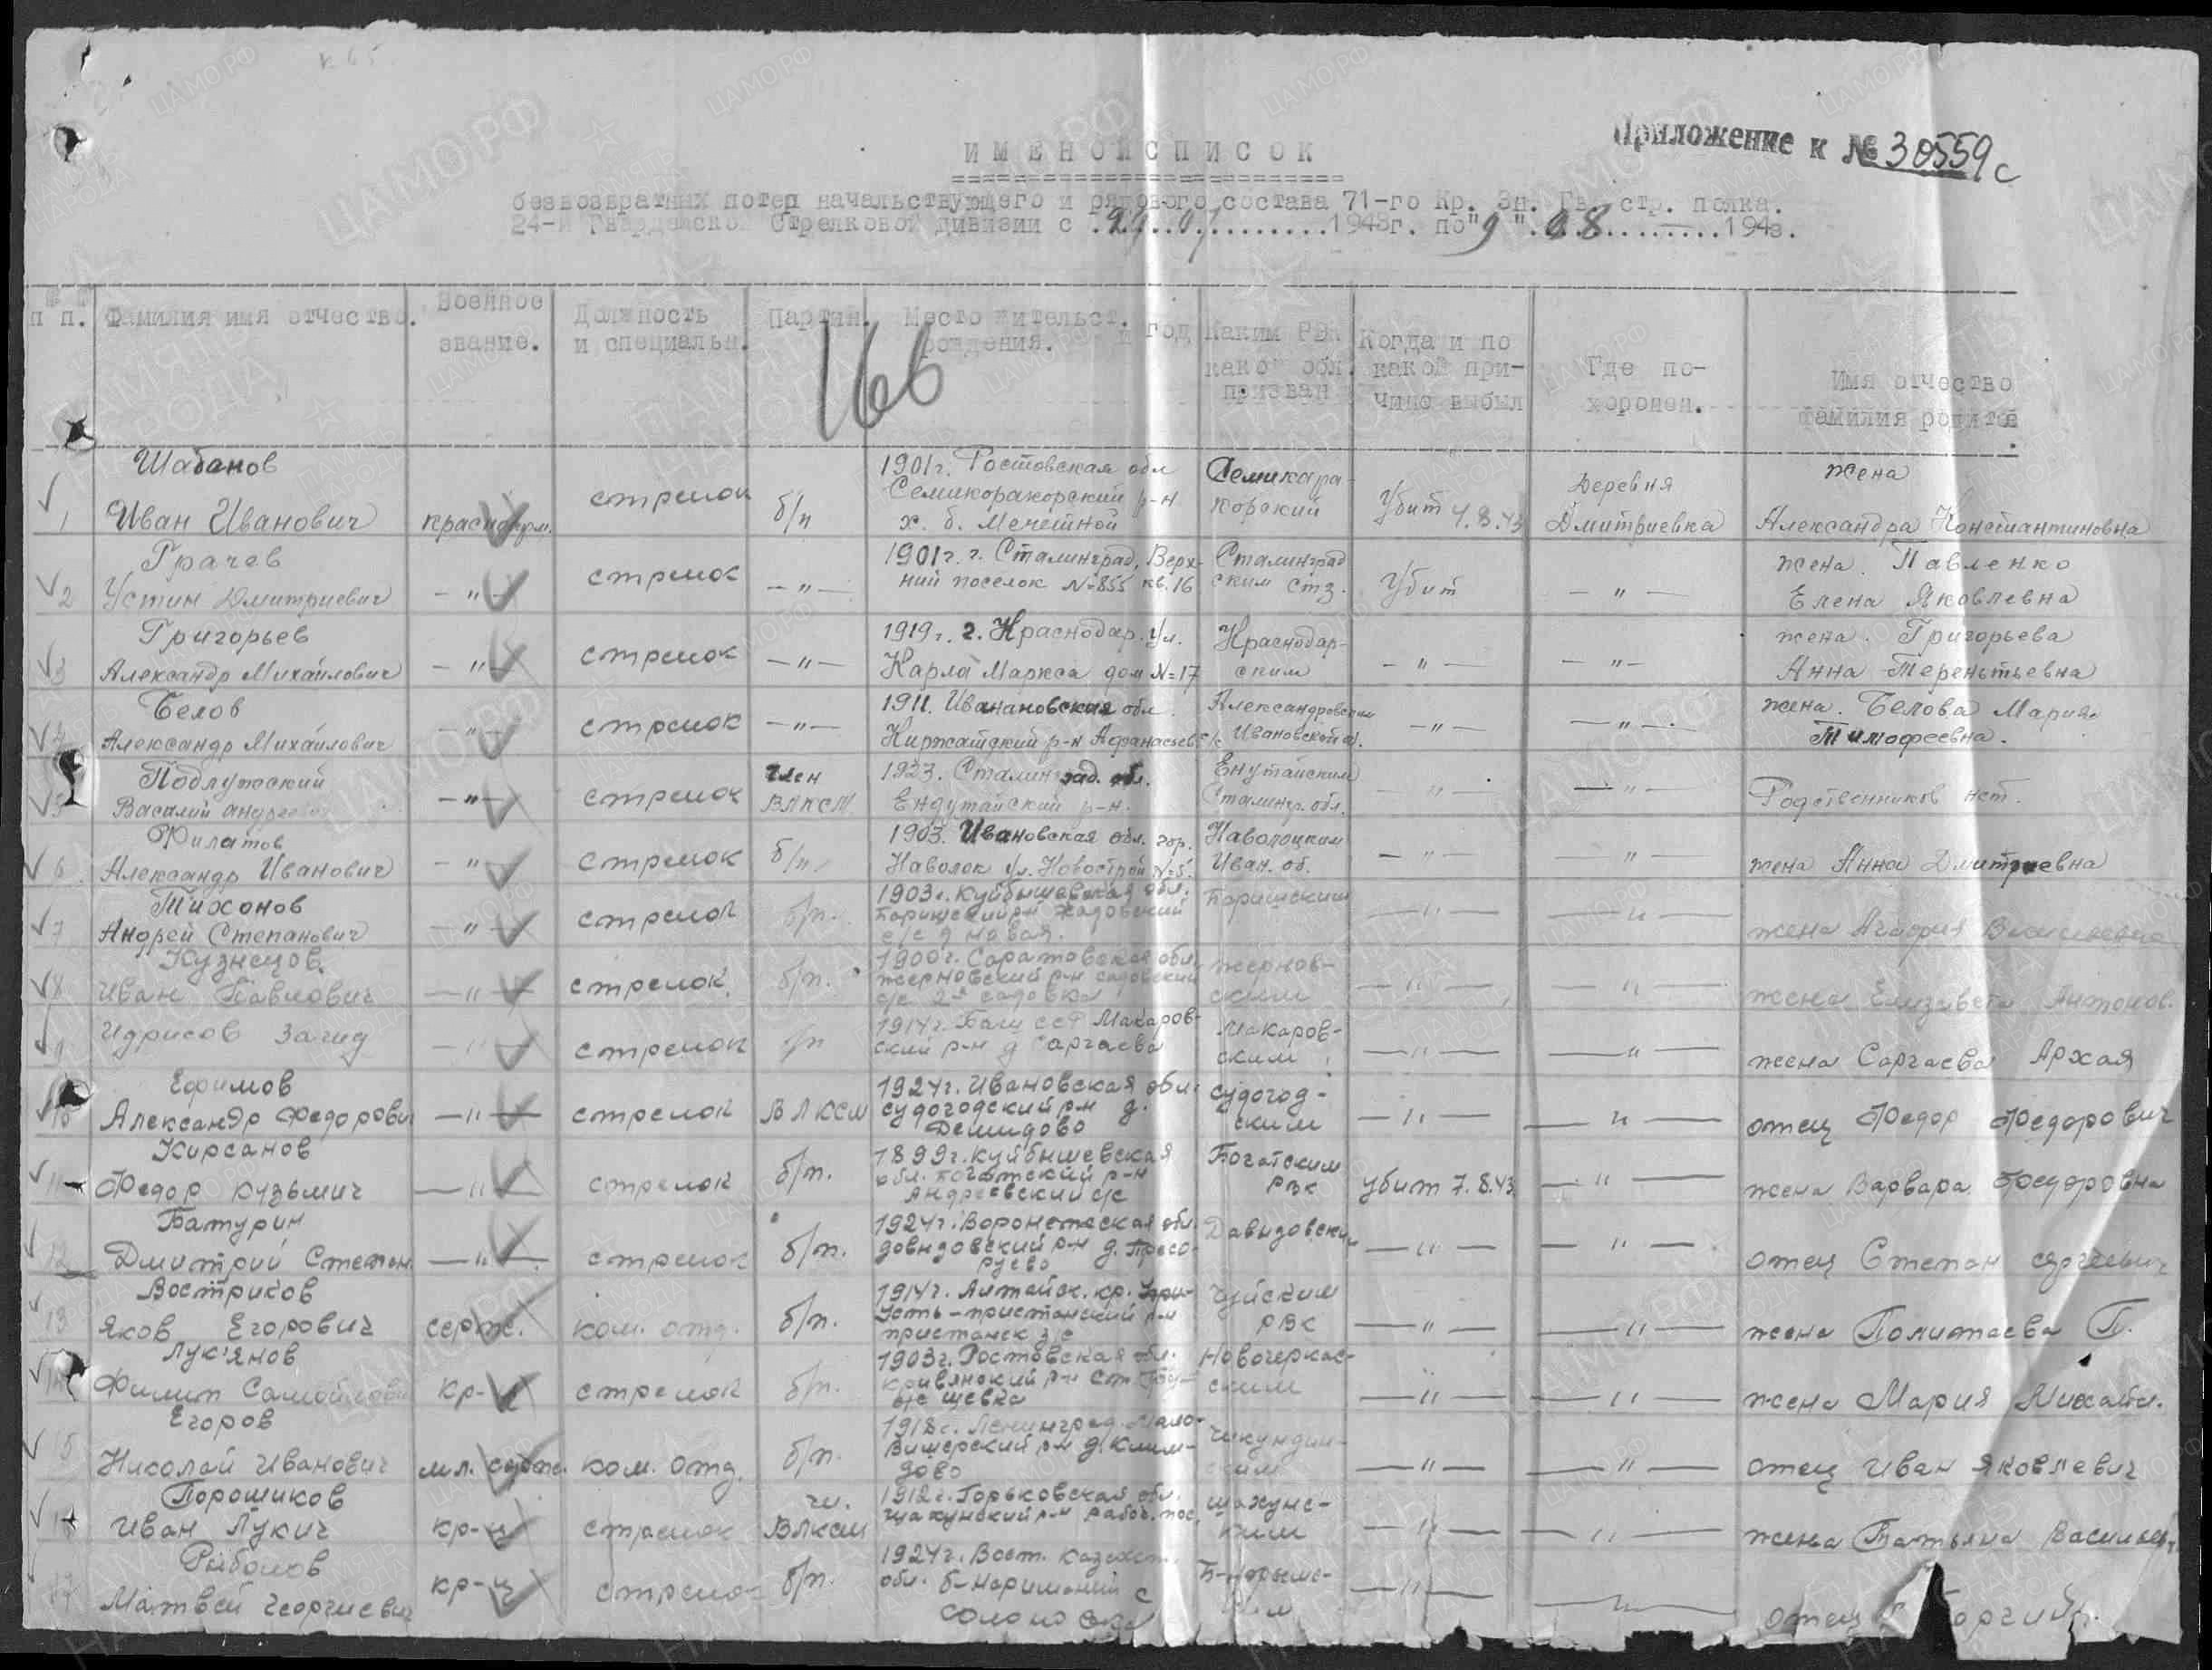 Приложение к № 30559с
ИМЕНОЙ СПИСОК
безвозвратных потерь начальствующего и рядового состава 71-го Кр. Зн. Гв. стр. полка.
24-й Гвардейской Стрелковой дивизии с 1943г. по "9" 08 1943.
п п. Фамилия имя отчество. Военное звание. Должность и специальн. Партийн. Место жительст. и год рождения. Каким РВК какой обл. призван Когда и по какой причине выбыл Где похоронен. Имя отчество фамилия родител
166
Шабанов
1 Иван Иванович красноарм. стрелок б/п 1901г. Ростовская обл Семикоракорский р-н х. б. Мечетной Семикаракорский Убит 4.8.43 Деревня Дмитриевка жена Александра Константиновна
Грачев
2 Устин Дмитриевич — " — стрелок — " — 1901г. г. Сталинград, Верхний поселок №855 кв. 16 Сталинградским стз. Убит — " — жена. Павленко Елена Яковлевна
Григорьев
3 Александр Михайлович — " — стрелок — " — 1919г. г. Краснодар. ул. Карла Маркса дом №17 Краснодарским — " — — " — жена. Григорьева Анна Терентьевна
Белов
4 Александр Михайлович — " — стрелок — " — 1911. Иванановская обл. Киржатский р-н Афанасьев Александровским Ивановской о. — " — — " — жена. Белова Мария Тимофеевна.
Подлужский
5 Василий стрелок член ВЛКСМ 1923. Сталинград. обл. Ендутайский р-н. Енутайским Сталингр. обл. — " — — " — Родственников нет.
Филатов
6 Александр Иванович — " — стрелок б/п 1903. Ивановская обл. гор. Наволок ул. Новострой №5. Наволоцким Иван. об. — " — — " — жена Анна Дмитриевна
Тихонов
7 Андрей Степанович — " — стрелок б/п. 1903г. Куйбышевская обл. Барышский р-н Жадовский с/с д новая. Барышским — " — — " — жена
Кузнецов
8 Иван Павлович — " — стрелок. б/п. 1900г. Саратовская обл. жерновский р-н садовский с/с 2я садовка жерновским — " — — " — жена Елизавета Антонов.
9 Идрисов Загид — " — стрелок б/п 1914г. Баш ССР Макаровский р-н д Саргаева Макаровским — " — — " — жена Саргаева Архая
Ефимов
10 Александр Федорович — " — стрелок ВЛКСМ 1924г. Ивановская обл. судогодский р-н д. Демидово судогодским — " — — " — отец Федор Федорович
Кирсанов
11 Федор Кузьмич — " — стрелок б/п. 1899г. куйбышевская обл. богатский р-н Андреевский с/с Богатским РВК убит 7.8.43 — " — жена Варвара Федоровна
Батурин
12 Дмитрий Степан — " — стрелок б/п. 1924г. Воронежская обл. довыдовский р-н д. Давыдовским — " — — " — отец Степан
Востриков
13 Яков Егорович серж. ком. отд. б/п. 1914г. Алтайск. кр. Усть-пристанский р-н пристанск з/с РВК — " — — " — жена Политаева П.
Лук'янов
14 Филип Самойлович кр-ц стрелок б/п. 1903г. Ростовская обл. кривянский р-н Новочеркасским — " — — " — жена Мария Михайл.
Егоров
15 Николай Иванович мл. серж. ком. отд. б/п. 1918г. Ленинград. Маловишерский р-н — " — — " — отец Иван Яковлевич
Порошиков
16 Иван Лукич кр-ц стрелок чл. ВЛКСМ 1912г. Горьковская обл. шахунский р-н рабоч. пос. шахунским — " — — " — жена Татьяна Васильев
Рыболов
17 Матвей Георгиевич кр-ц стрелок б/п. 1924г. Вост. Казахст. обл. — " — отец